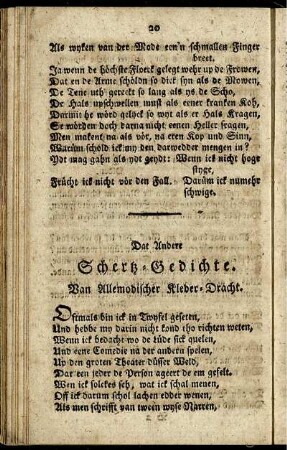 20
Als wyken van der Mode een'n schmallen Finger
breet.
Ja wenn de höchste Floerk gelegt wehr up de Frowen,
Dat en de Arme schölden so dick syn als de Mowen,
De Tene uth gereckt so lang als ys de Scho,
De Hals upschwellen must als ener kranken Koh,
Darmit he wörd gelyck so wyt als er Hals Kragen,
Se wörden doch darna nicht enen Heller fragen,
Men makent na als vör, na eren Kop und Sinn,
Warüm schold ick my den darwedder mengen in?
Ydt mag gahn als ydt geydt: Wenn ick nicht hoge
styge,
Frücht ick nicht vör den Fall. Darüm ick numehr
schwige.
Dat Andere
Schertz-Gedichte.
Van Allemodischer Kleder-Dracht.
Oftmals bin ick in Twyfel geseten,
Und hebbe my darin nicht kond tho richten weten,
Wenn ick bedacht wo de Lüde sick quelen,
Und eene Comedie na der andern spelen,
Up den groten Theater düsser Weld,
Dar een ieder de Person ageert de em gefelt.
Wen ick solckes seh, wat ick schal menen,
Off ick darum schol lachen edder wenen,
Als men schrifft van tween wyse Narren,